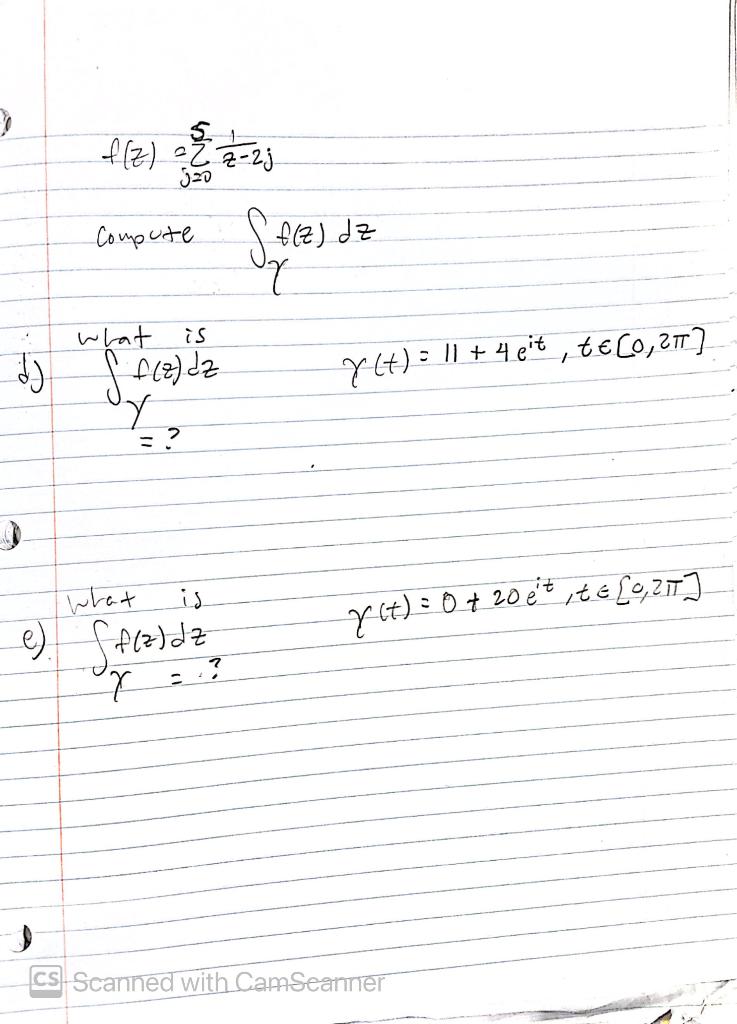 f(z) = 5 Σ j=0 1/(z-2j)
compute ∫γ f(z) dz
what is
d) ∫γ f(z) dz γ(t) = 11 + 4e^{it}, t ∈ [0, 2π]
= ?
what is
e) ∫γ f(z) dz γ(t) = 0 + 20e^{it}, t ∈ [0, 2π]
= ?
CS Scanned with CamScanner